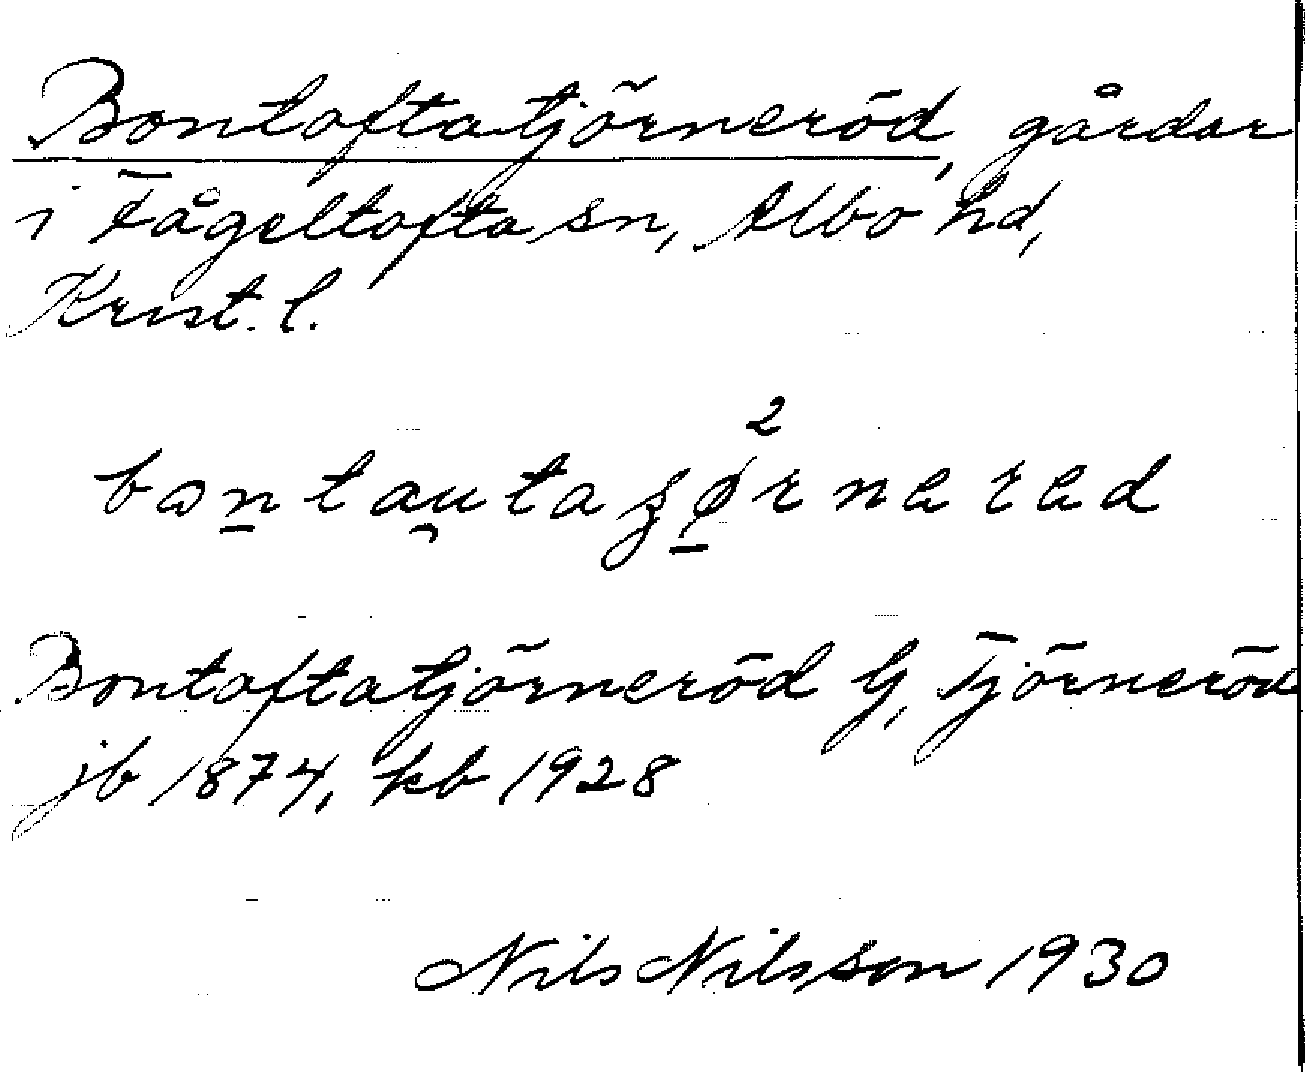 Bontoftatjörneröd, gårdar
i Fågeltofta sn, Albo hd,
Krist. l.
2
bon̲tau̯taʒø̲rnered
Bontoftatjörneröd G, Tjörneröd
jb 1874, kb 1928
Nils Nilsson 1930